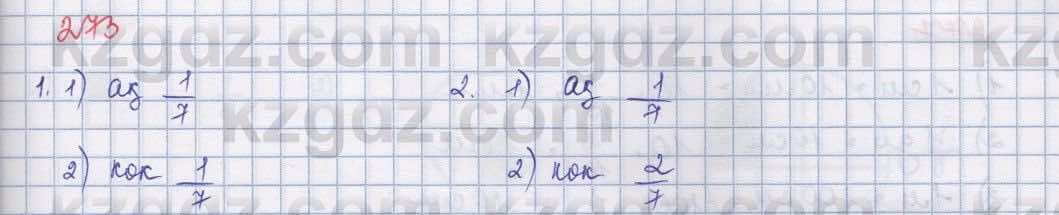 273
1. 1) ақ 1/7 2. 1) ақ 1/7
2) көк 1/7 2) көк 2/7
kzgdz.com kzgdz.com kz
kzgdz.com